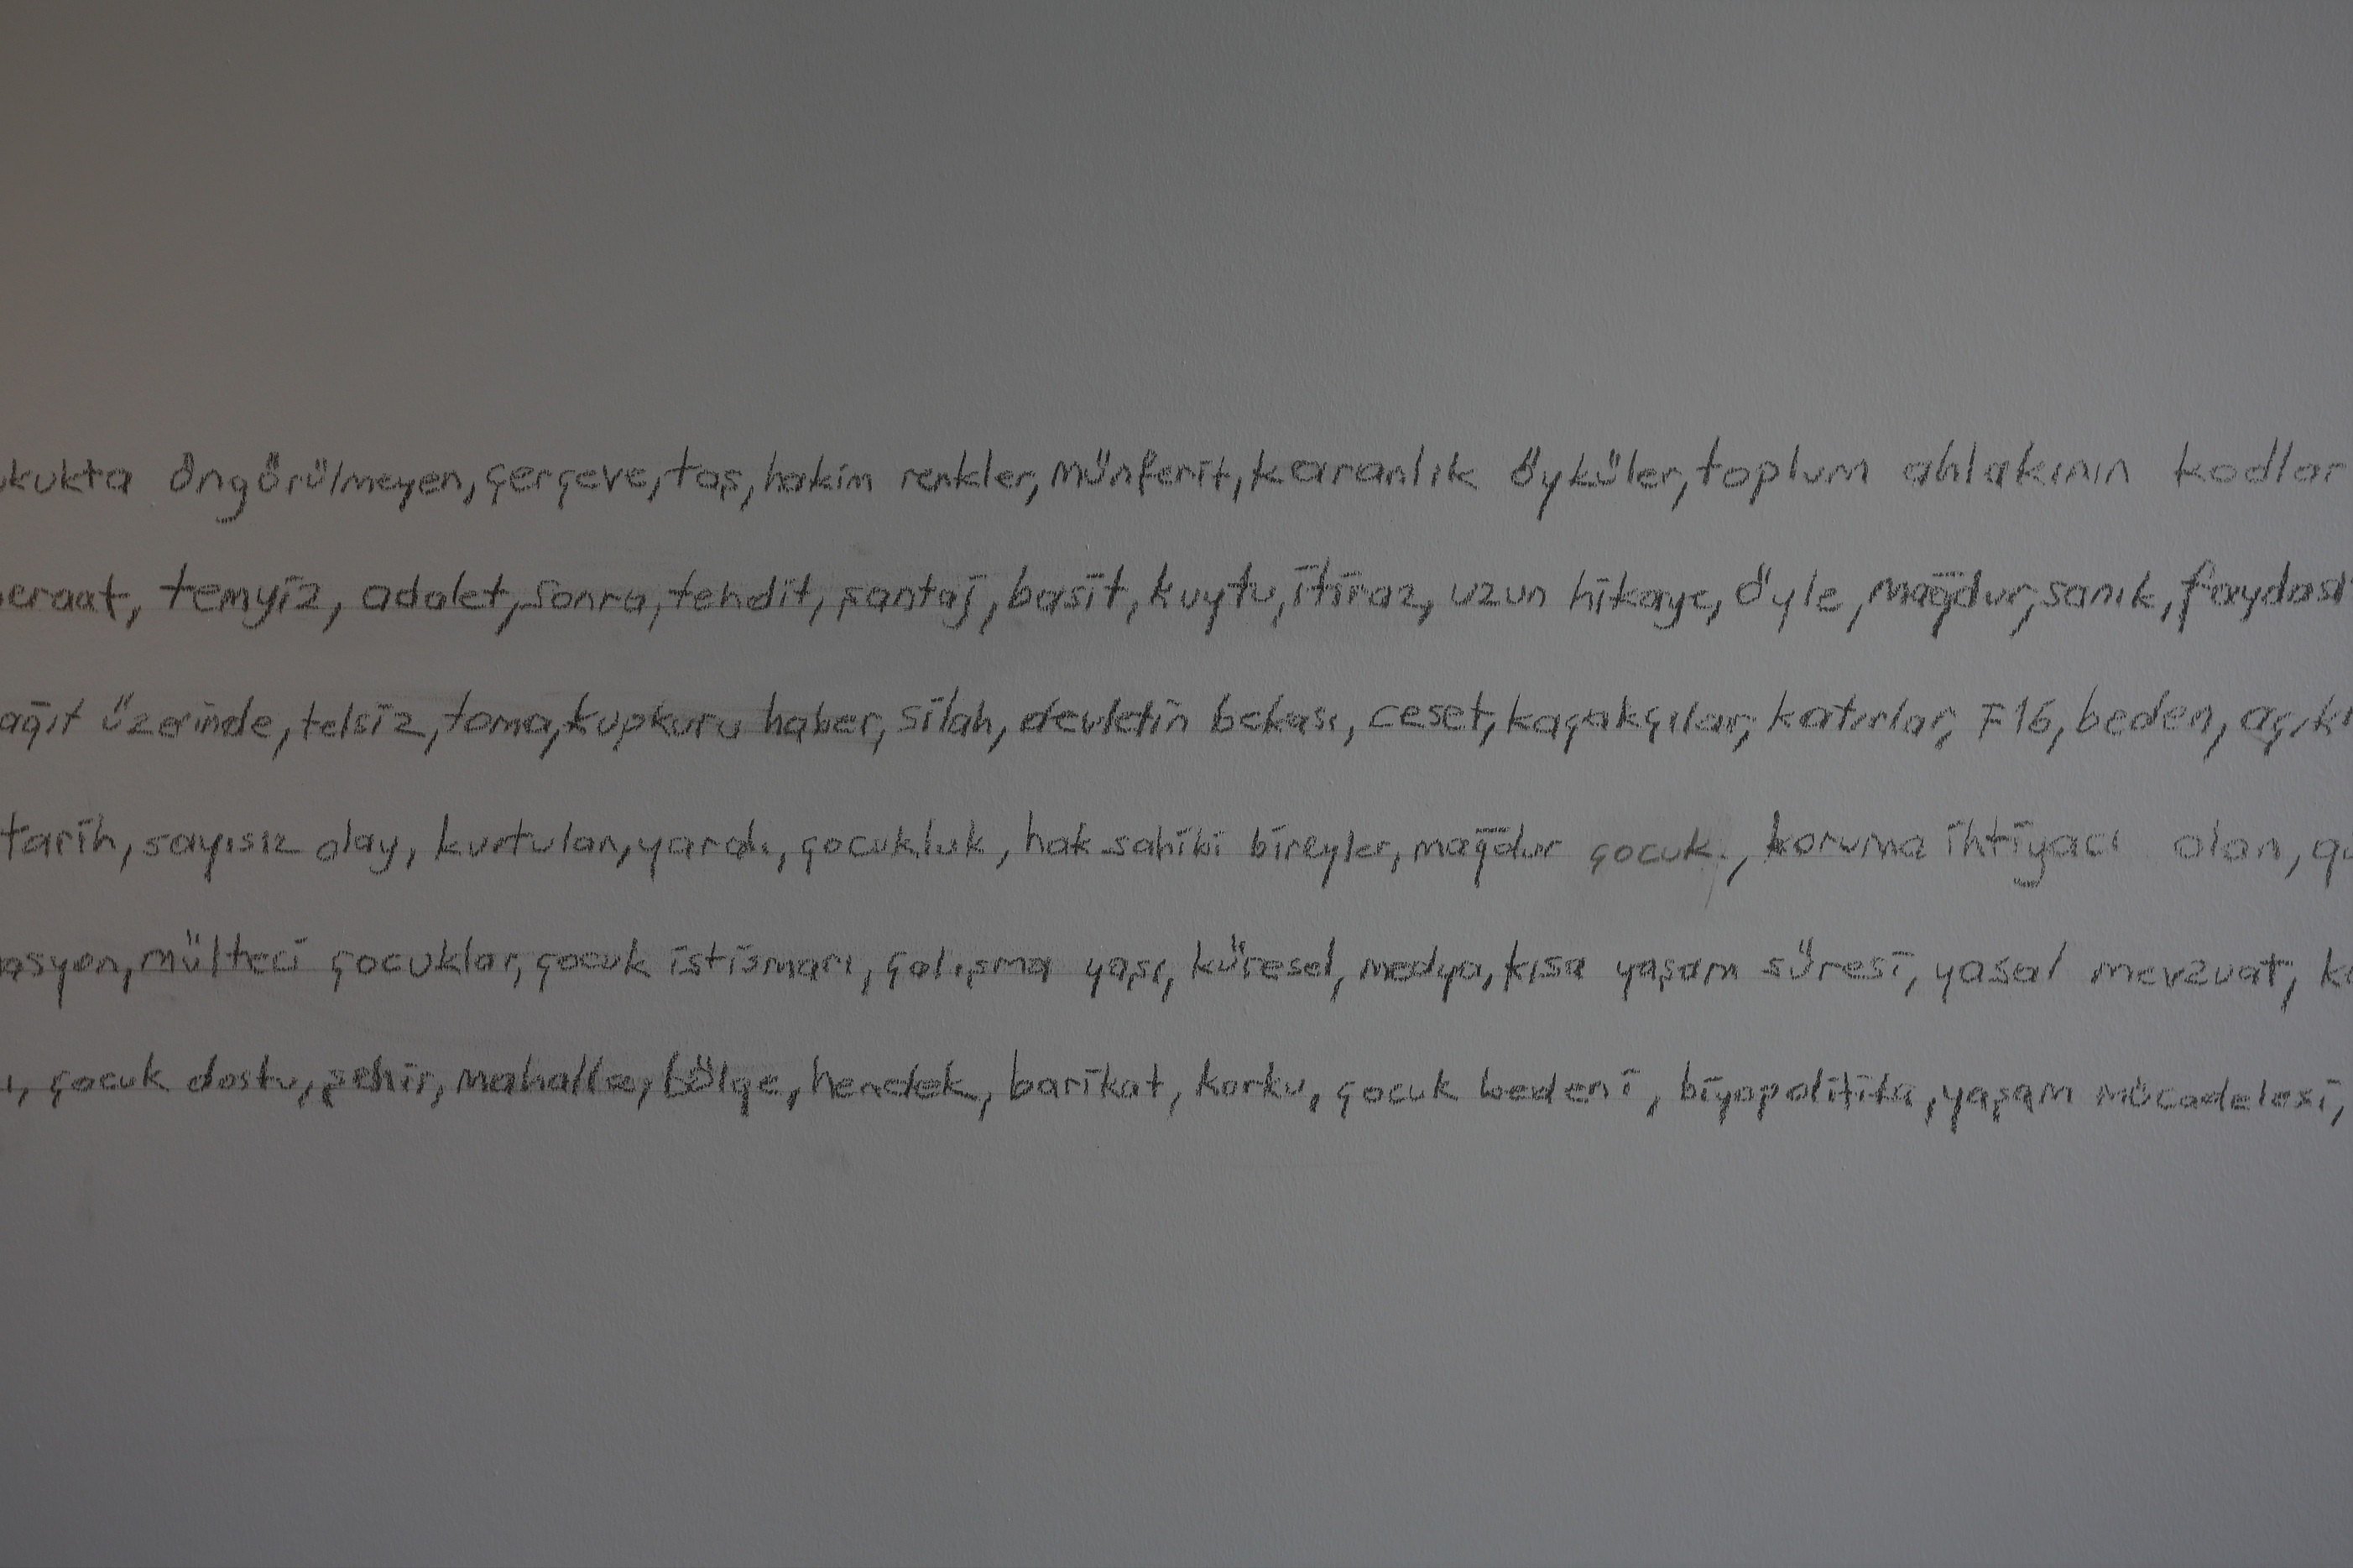 ukukta öngörülmeyen, çerçeve, taş, hakim renkler, münferit, karanlık öyküler, toplum ahlakının kodlar
eraat, temyiz, adalet, sonra, tehdit, şantaj, basit, kuytu, itiraz, uzun hikaye, öyle, mağdur, sanık, faydası
ağıt üzerinde, telsiz, toma, kupkuru haber, silah, devletin bekası, ceset, kaçakçılar, katırlar, F16, beden, açık
tarih, sayısız olay, kurtulan, yaralı, çocukluk, hak sahibi bireyler, mağdur çocuk, koruma ihtiyacı olan,
asyon, mülteci çocuklar, çocuk istismarı, çalışma yaşı, küresel, medya, kısa yaşam süresi, yasal mevzuat,
ı, çocuk dostu, şehir, mahalle, bölge, hendek, barikat, korku, çocuk bedeni, biyopolitika, yaşam mücadelesi,